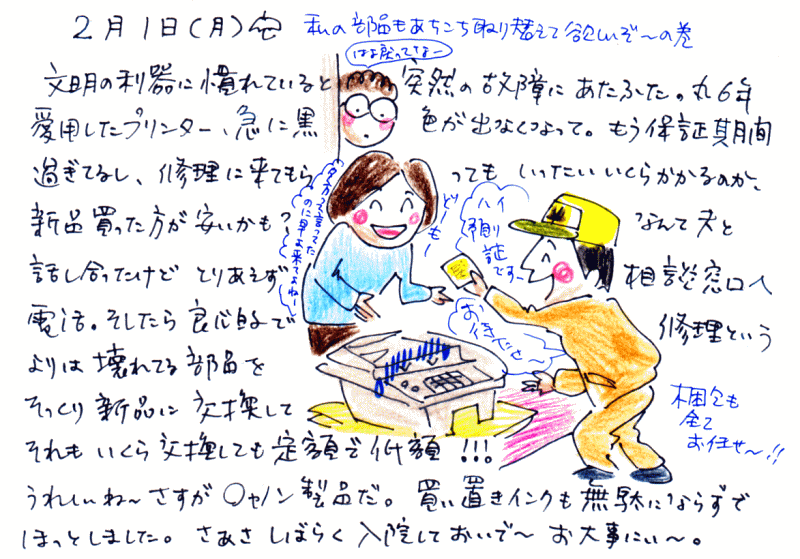 2月1日(月)
私の部品もあちこち取り替えて欲しいぞ〜の巻
はよ戻ってきなー
文明の利器に慣れていると 突然の故障にあたふた。丸6年
愛用したプリンター、急に黒 色が出なくなって。もう保証期間
過ぎてるし、修理に来てもら ってもいったいいくらかかるのか、
新品買った方が安いかも? なんて夫と
話し合ったけどとりあえず 相談窓口へ
電話。そしたら良心的で 修理という
よりは壊れてる部品を
そっくり新品に交換して
それもいくら交換しても定額で低額!!!
うれしいね〜さすが〇ャノン製品だ。買い置きインクも無駄にならずで
ほっとしました。さあさしばらく入院しておいで〜お大事にぃ〜。
夕方って言ってたのに早よ来てよね
どーもー
ハイ
証ですー
梱包も
全て
お任せ〜!!